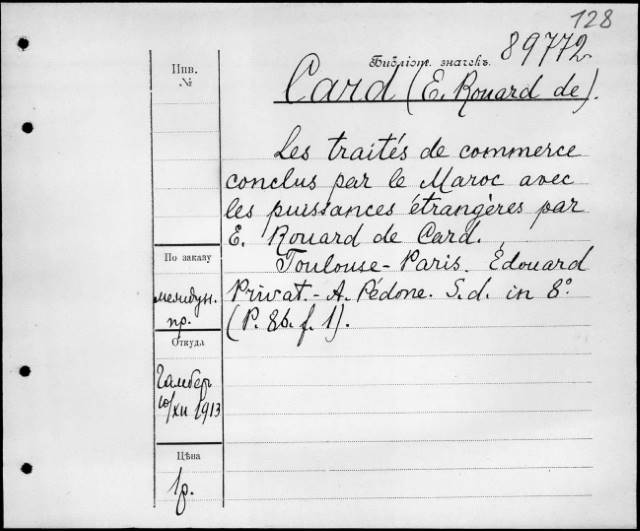 128
Библіот. значекъ. 89772
Инв.
№
Card (E. Rouard de).
Les traités de commerce
conclus par le Maroc avec
les puissances étrangères par
E. Rouard de Card.
По заказу
Toulouse-Paris. Édouard
Privat.-A. Pédone. S.d. in 8°
междун.
пр.
(P. 86. f. 1).
Откуда
Гамбер
10/XII 1913
Цѣна
1р.